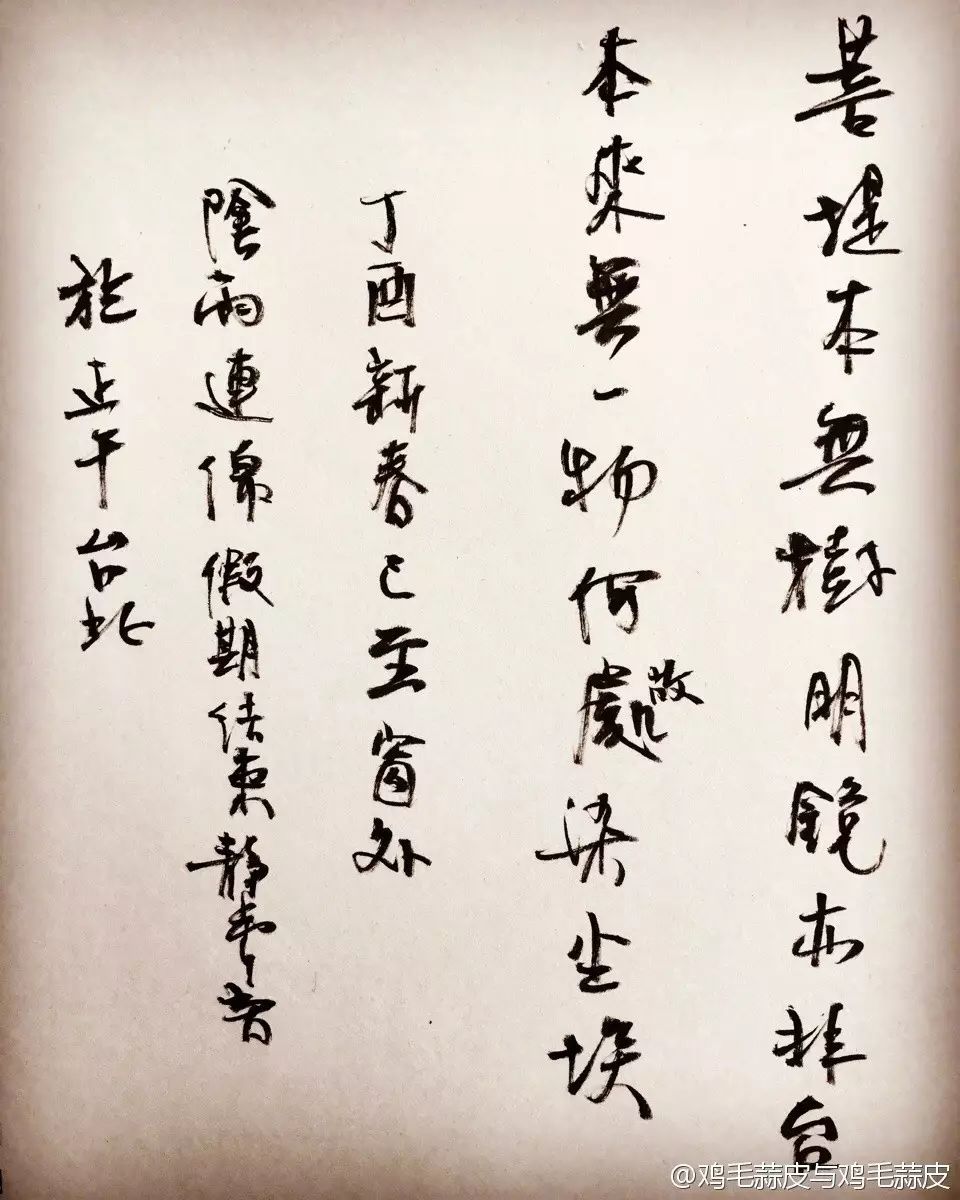 菩堤本無樹明鏡亦非台
本來無一物何處故染尘埃
丁酉新春已至窗外
陰雨連綿假期结束靜
於正午台北
@鸡毛蒜皮与鸡毛蒜皮